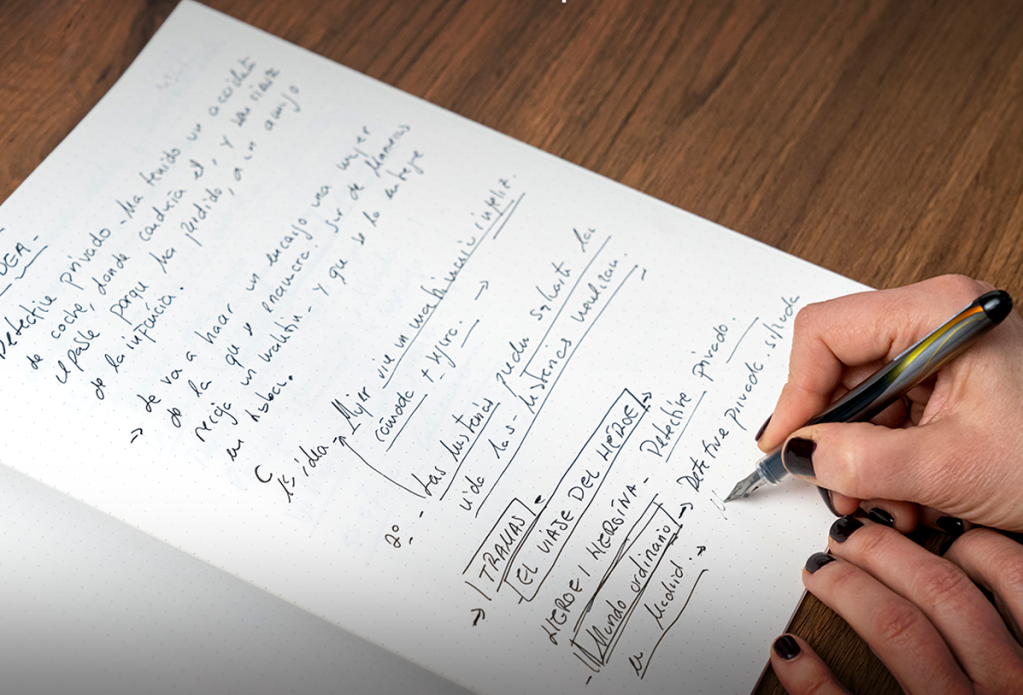 IDEA -
Detective privado - Ha tenido un accidente
de coche, donde conducía él, y
el parte porque ha perdido, a un amigo
de la infancia.
→ Se va a hacer un encargo una mujer
de la que se enamora; sur de
recoja un maletín - y que se lo entregue
en
1ª idea → Mujer vive un matrimonio infeliz.
cómoda +
2º - Las historias pueden salvarte la
vida - las historias
→ TRAMAS
EL VIAJE DEL HEROE
HEROE / HEROÍNA - Detective privado.
- 1) Mundo ordinario → Detective privado.
en Madrid. →